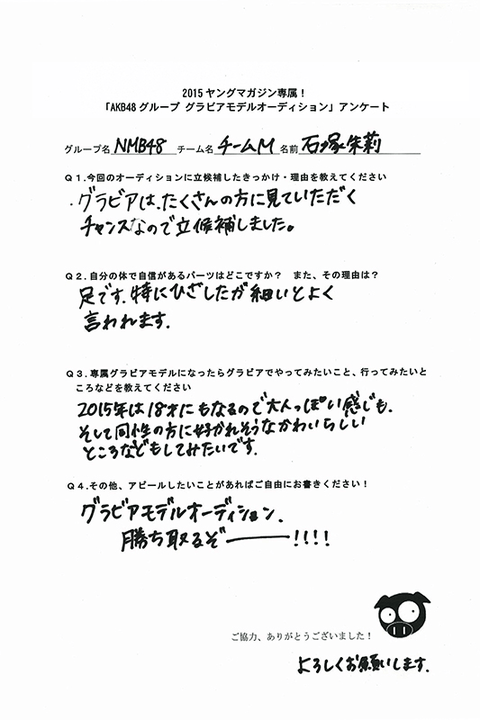 2015ヤングマガジン専属！
「AKB48グループ グラビアモデルオーディション」アンケート
グループ名 NMB48 チーム名 チームM 名前 石塚朱莉
Q1.今回のオーディションに立候補したきっかけ・理由を教えてください
・グラビアは、たくさんの方に見ていただく
チャンスなので立候補しました。
Q2.自分の体で自信があるパーツはどこですか？ また、その理由は？
足です。特にひざしたが細いとよく
言われます。
Q3.専属グラビアモデルになったらグラビアでやってみたいこと、行ってみたいと
ころなどを教えてください
2015年は18才にもなるので大人っぽい感じも、
そして同性の方に好かれそうなかわいらしい
ところなどもしてみたいです。
Q4.その他、アピールしたいことがあればご自由にお書きください！
グラビアモデルオーディション、
勝ち取るぞー！！！！
ご協力、ありがとうございました！
よろしくお願いします。